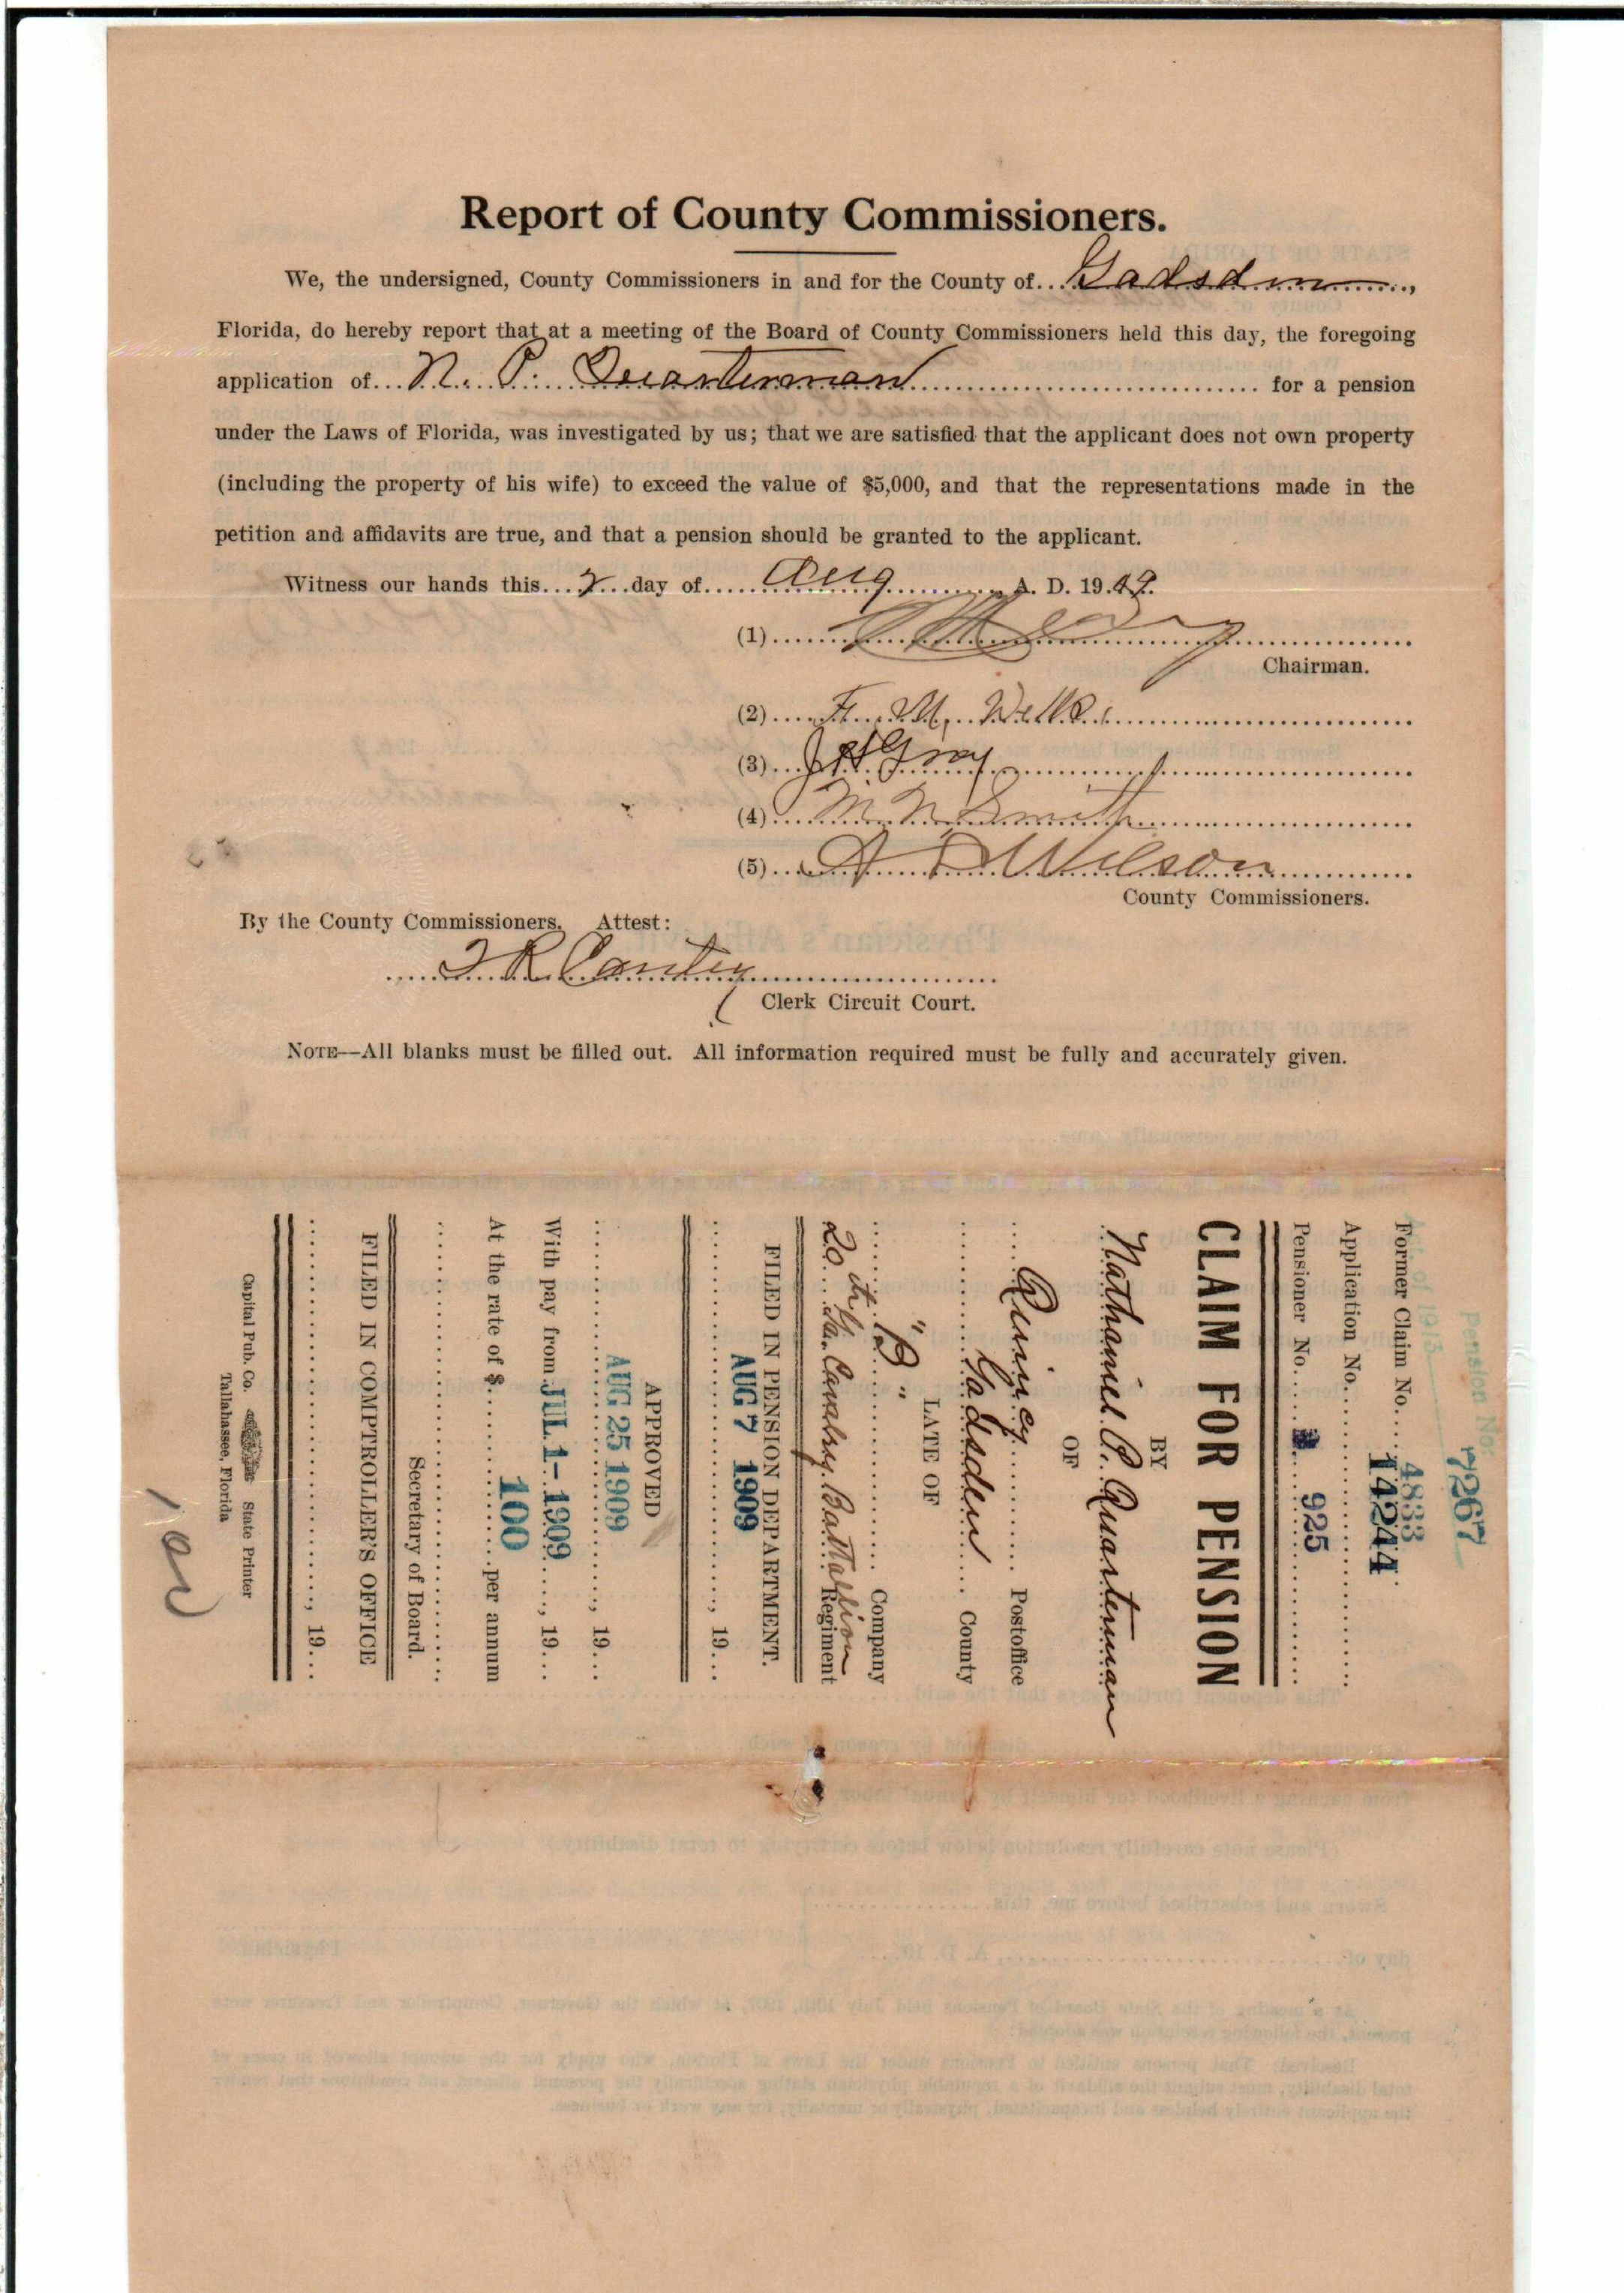 Report of County Commissioners.
We, the undersigned, County Commissioners in and for the County of Gadsden,
Florida, do hereby report that at a meeting of the Board of County Commissioners held this day, the foregoing
application of N. P. Quarterman for a pension
under the Laws of Florida, was investigated by us; that we are satisfied that the applicant does not own property
(including the property of his wife) to exceed the value of $5,000, and that the representations made in the
petition and affidavits are true, and that a pension should be granted to the applicant.
Witness our hands this 2 day of Aug A. D. 1909.
(1)
Chairman.
(2) F. M. Wells
(3) J H Gray
(4) M. N. Smith
(5) A D Wilson
County Commissioners.
By the County Commissioners. Attest:
Clerk Circuit Court.
NOTE—All blanks must be filled out. All information required must be fully and accurately given.
Pension No. 7267
Act of 1913
4833
Former Claim No. 14244
Application No.
Pensioner No. 925
CLAIM FOR PENSION
BY
Nathaniel P. Quarterman
OF
Quincy Postoffice
Gadsden County
LATE OF
"B" Company
20th Ga. Cavalry Battalion Regiment
FILED IN PENSION DEPARTMENT.
AUG 7 1909, 19
APPROVED
AUG 25 1909, 19
With pay from JUL 1- 1909, 19
At the rate of $ 100 per annum
Secretary of Board.
FILED IN COMPTROLLER'S OFFICE
, 19
Capital Pub. Co. State Printer
Tallahassee, Florida